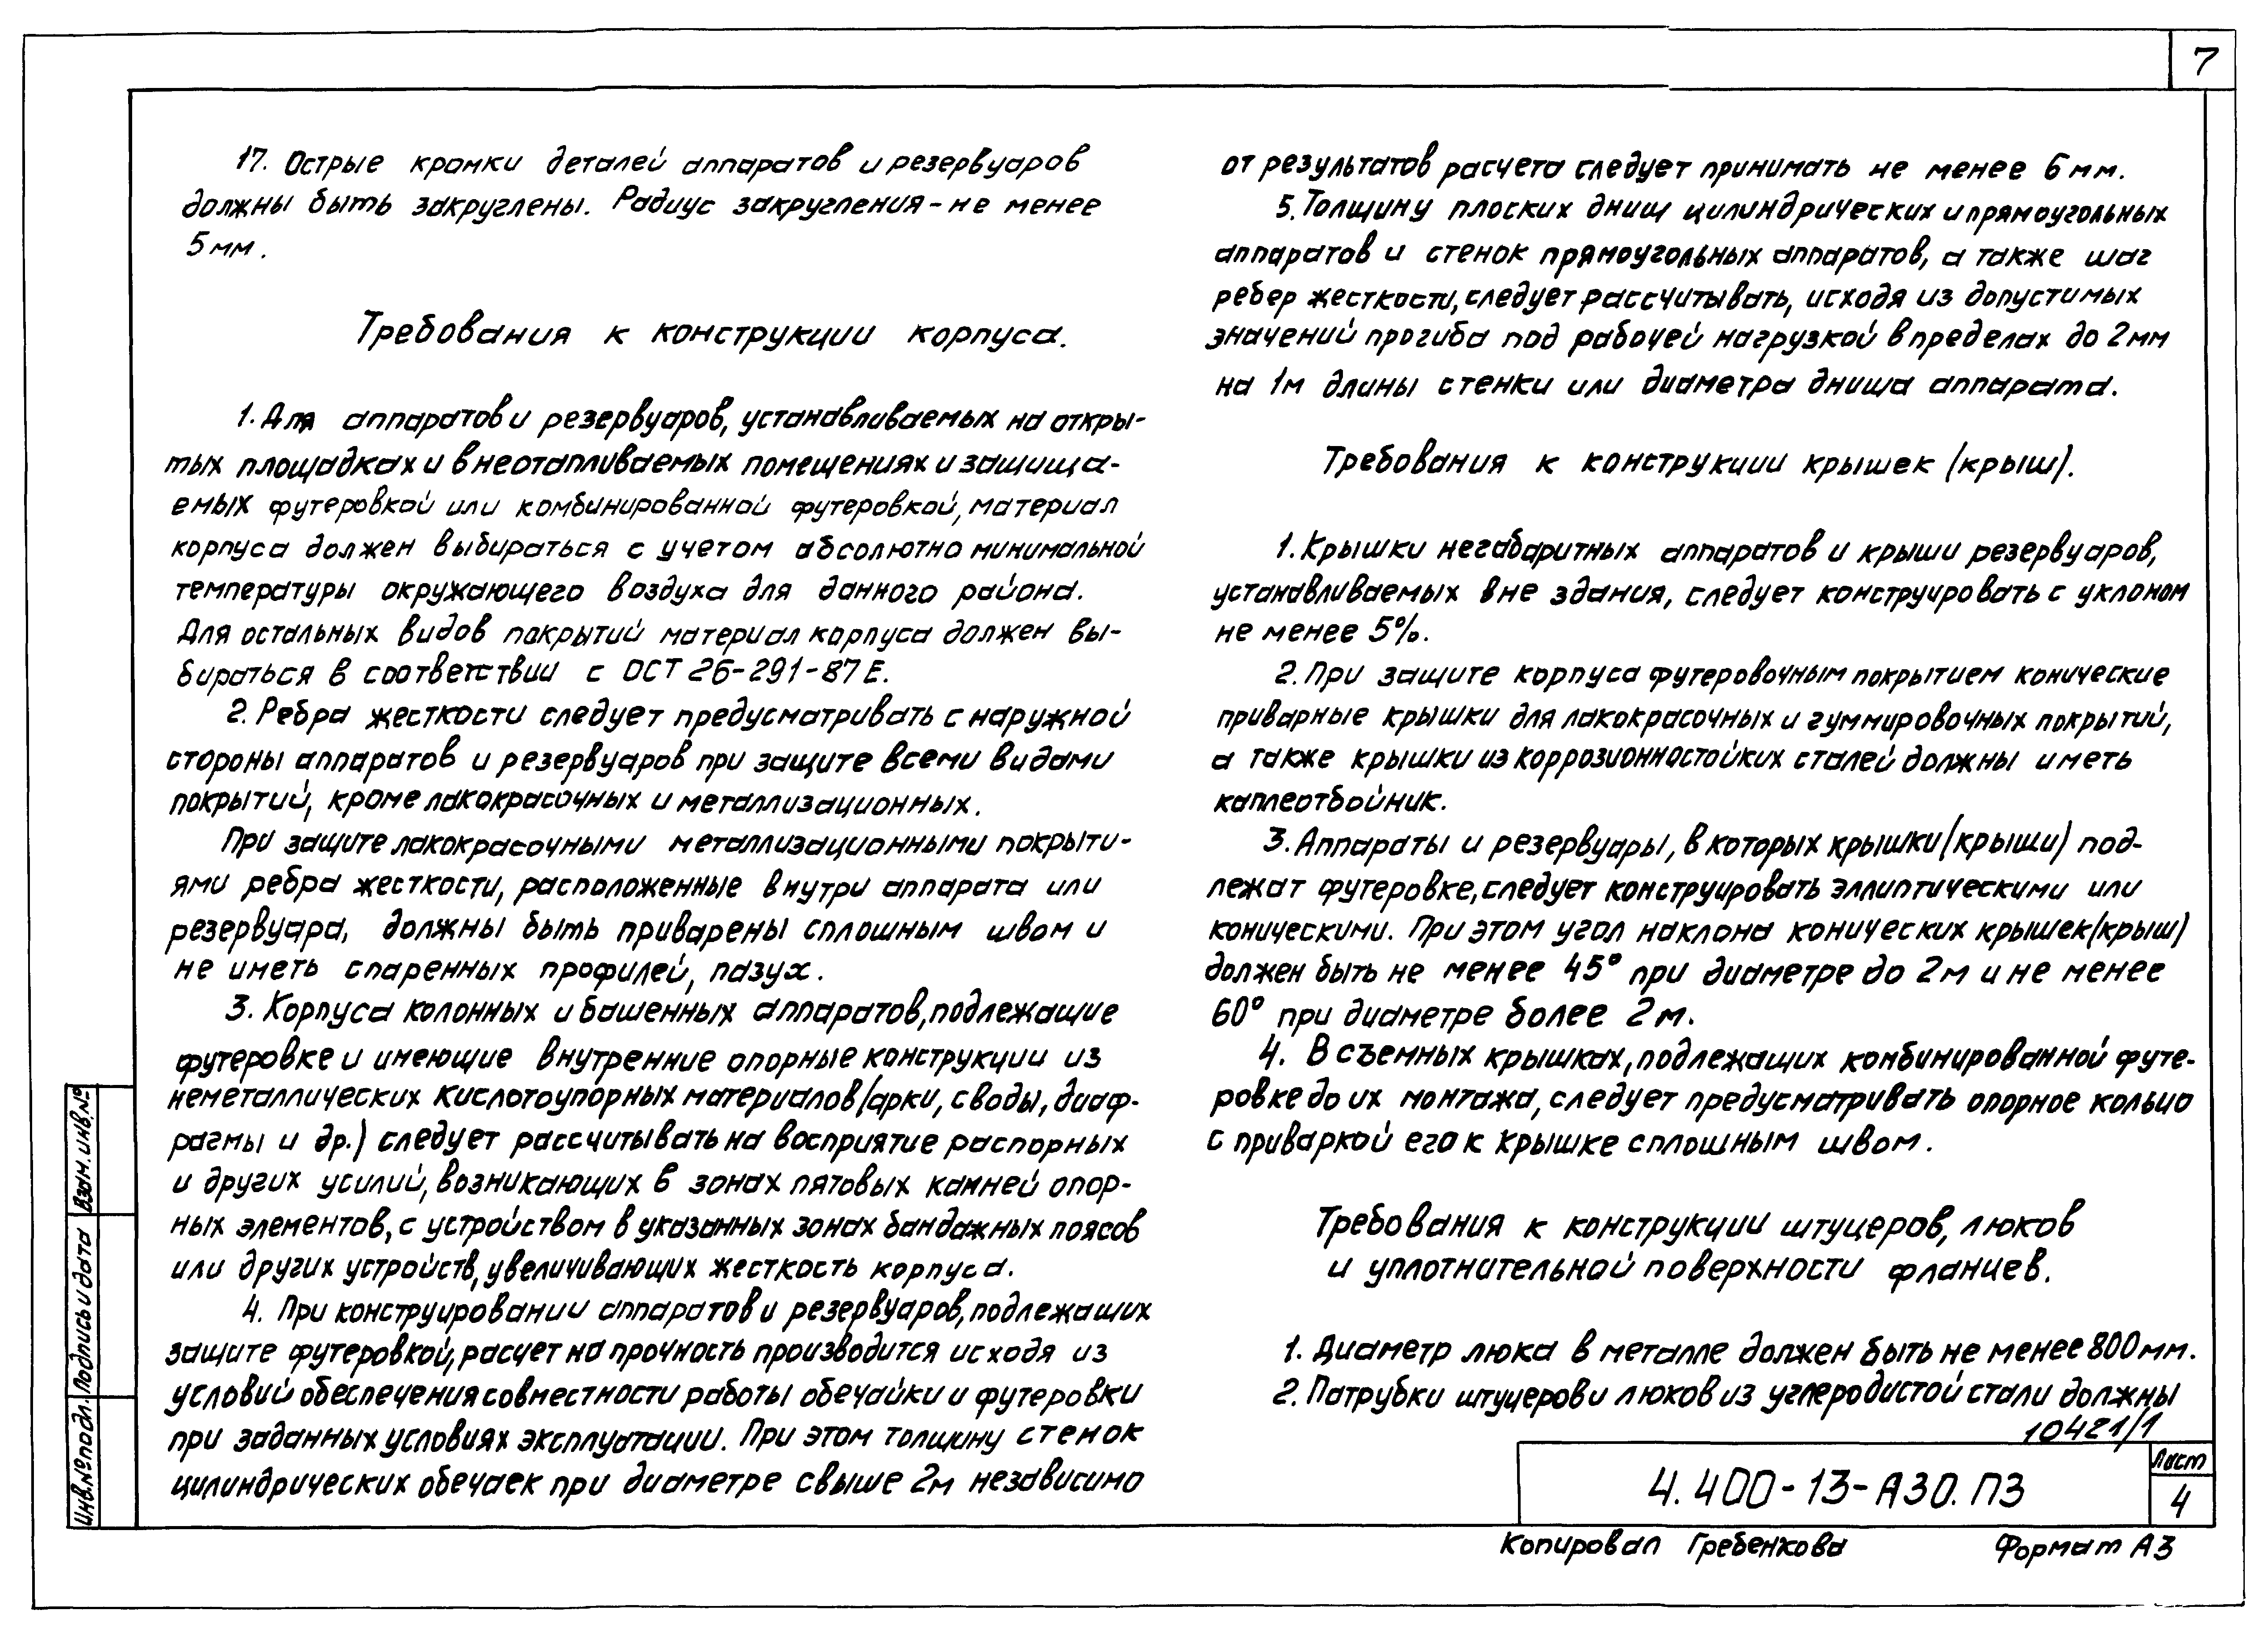 7
17. Острые кромки деталей аппаратов и резервуаров
должны быть закруглены. Радиус закругления - не менее
5 мм.
Требования к конструкции корпуса.
1. Для аппаратов и резервуаров, устанавливаемых на откры-
тых площадках и в неотапливаемых помещениях и защища-
емых футеровкой или комбинированной футеровкой, материал
корпуса должен выбираться с учетом абсолютно минимальной
температуры окружающего воздуха для данного района.
Для остальных видов покрытий материал корпуса должен вы-
бираться в соответствии с ОСТ 26-291-87Е.
2. Ребра жесткости следует предусматривать с наружной
стороны аппаратов и резервуаров при защите всеми видами
покрытий, кроме лакокрасочных и металлизационных.
При защите лакокрасочными металлизационными покрыти-
ями ребра жесткости, расположенные внутри аппарата или
резервуара, должны быть приварены сплошным швом и
не иметь спаренных профилей, пазух.
3. Корпуса колонных и башенных аппаратов, подлежащие
футеровке и имеющие внутренние опорные конструкции из
неметаллических кислотоупорных материалов (арки, своды, диаф-
рагмы и др.) следует рассчитывать на восприятие распорных
и других усилий, возникающих в зонах пятовых камней опор-
ных элементов, с устройством в указанных зонах бандажных поясов
или других устройств, увеличивающих жесткость корпуса.
4. При конструировании аппаратов и резервуаров, подлежащих
защите футеровкой, расчет на прочность производится исходя из
условий обеспечения совместности работы обечайки и футеровки
при заданных условиях эксплуатации. При этом толщину стенок
цилиндрических обечаек при диаметре свыше 2м независимо
от результатов расчета следует принимать не менее 6 мм.
5. Толщину плоских днищ цилиндрических и прямоугольных
аппаратов и стенок прямоугольных аппаратов, а также шаг
ребер жесткости, следует рассчитывать, исходя из допустимых
значений прогиба под рабочей нагрузкой в пределах до 2мм
на 1м длины стенки или диаметра днища аппарата.
Требования к конструкции крышек (крыш).
1. Крышки негабаритных аппаратов и крыши резервуаров,
устанавливаемых вне здания, следует конструировать с уклоном
не менее 5%.
2. При защите корпуса футеровочным покрытием конические
приварные крышки для лакокрасочных и гуммировочных покрытий,
а также крышки из коррозионностойких сталей должны иметь
каплеотбойник.
3. Аппараты и резервуары, в которых крышки (крыши) под-
лежат футеровке, следует конструировать эллиптическими или
коническими. При этом угол наклона конических крышек (крыш)
должен быть не менее 45° при диаметре до 2м и не менее
60° при диаметре более 2м.
4. В съемных крышках, подлежащих комбинированной футе-
ровке до их монтажа, следует предусматривать опорное кольцо
с приваркой его к крышке сплошным швом.
Требования к конструкции штуцеров, люков
и уплотнительной поверхности фланцев.
1. Диаметр люка в металле должен быть не менее 800мм.
2. Патрубки штуцеров и люков из углеродистой стали должны
10421/1
4.400-13-АЗО.ПЗ
Лист
4
Копировал Гребенкова Формат А3
Взам. инв. №
Подпись и дата
Инв. № подл.